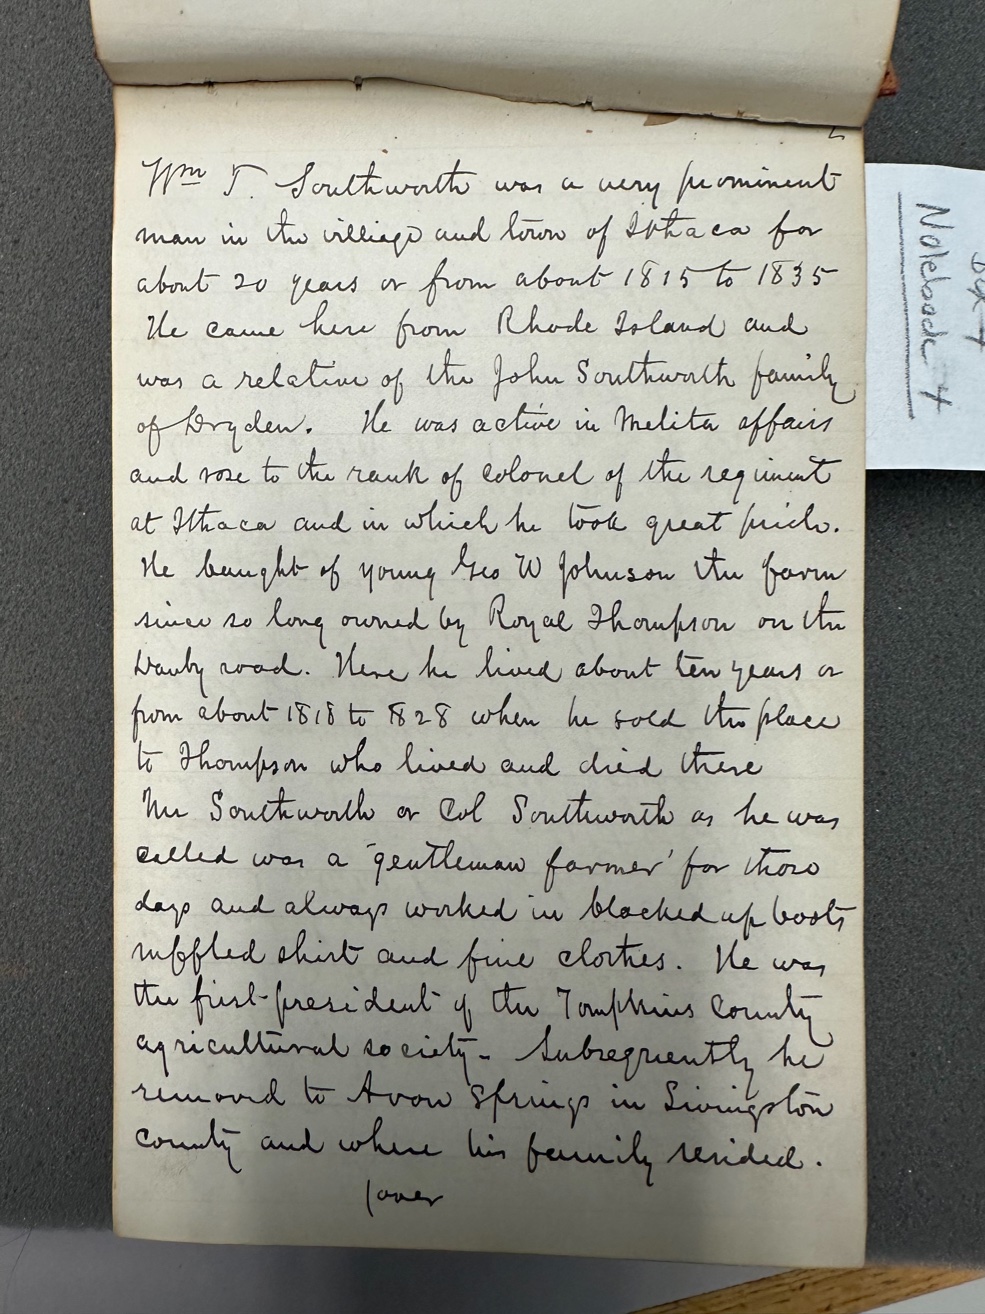 Wm T. Southworth was a very prominent
man in the villiage and town of Ithaca for
about 20 years or from about 1815 to 1835
He came here from Rhode Island and
was a relative of the John Southworth family
of Dryden. He was active in Melita affairs
and rose to the rank of colonel of the regiment
at Ithaca and in which he took great pride.
He baught of young Geo W Johnson the farm
since so long owned by Royal Thompson on the
Danby road. Here he lived about ten years or
from about 1818 to 1828 when he sold the place
to Thompson who lived and died there
Mr Southworth or Col Southworth as he was
called was a "gentleman farmer' for those
days and always worked in blacked up boots
ruffled shirt and fine clothes. He was
the first president of the Tompkins County
agricultural society - Subsequently he
removed to Avon Springs in Livingston
County and where his family resided.
(over
Box 4
Notebook 4